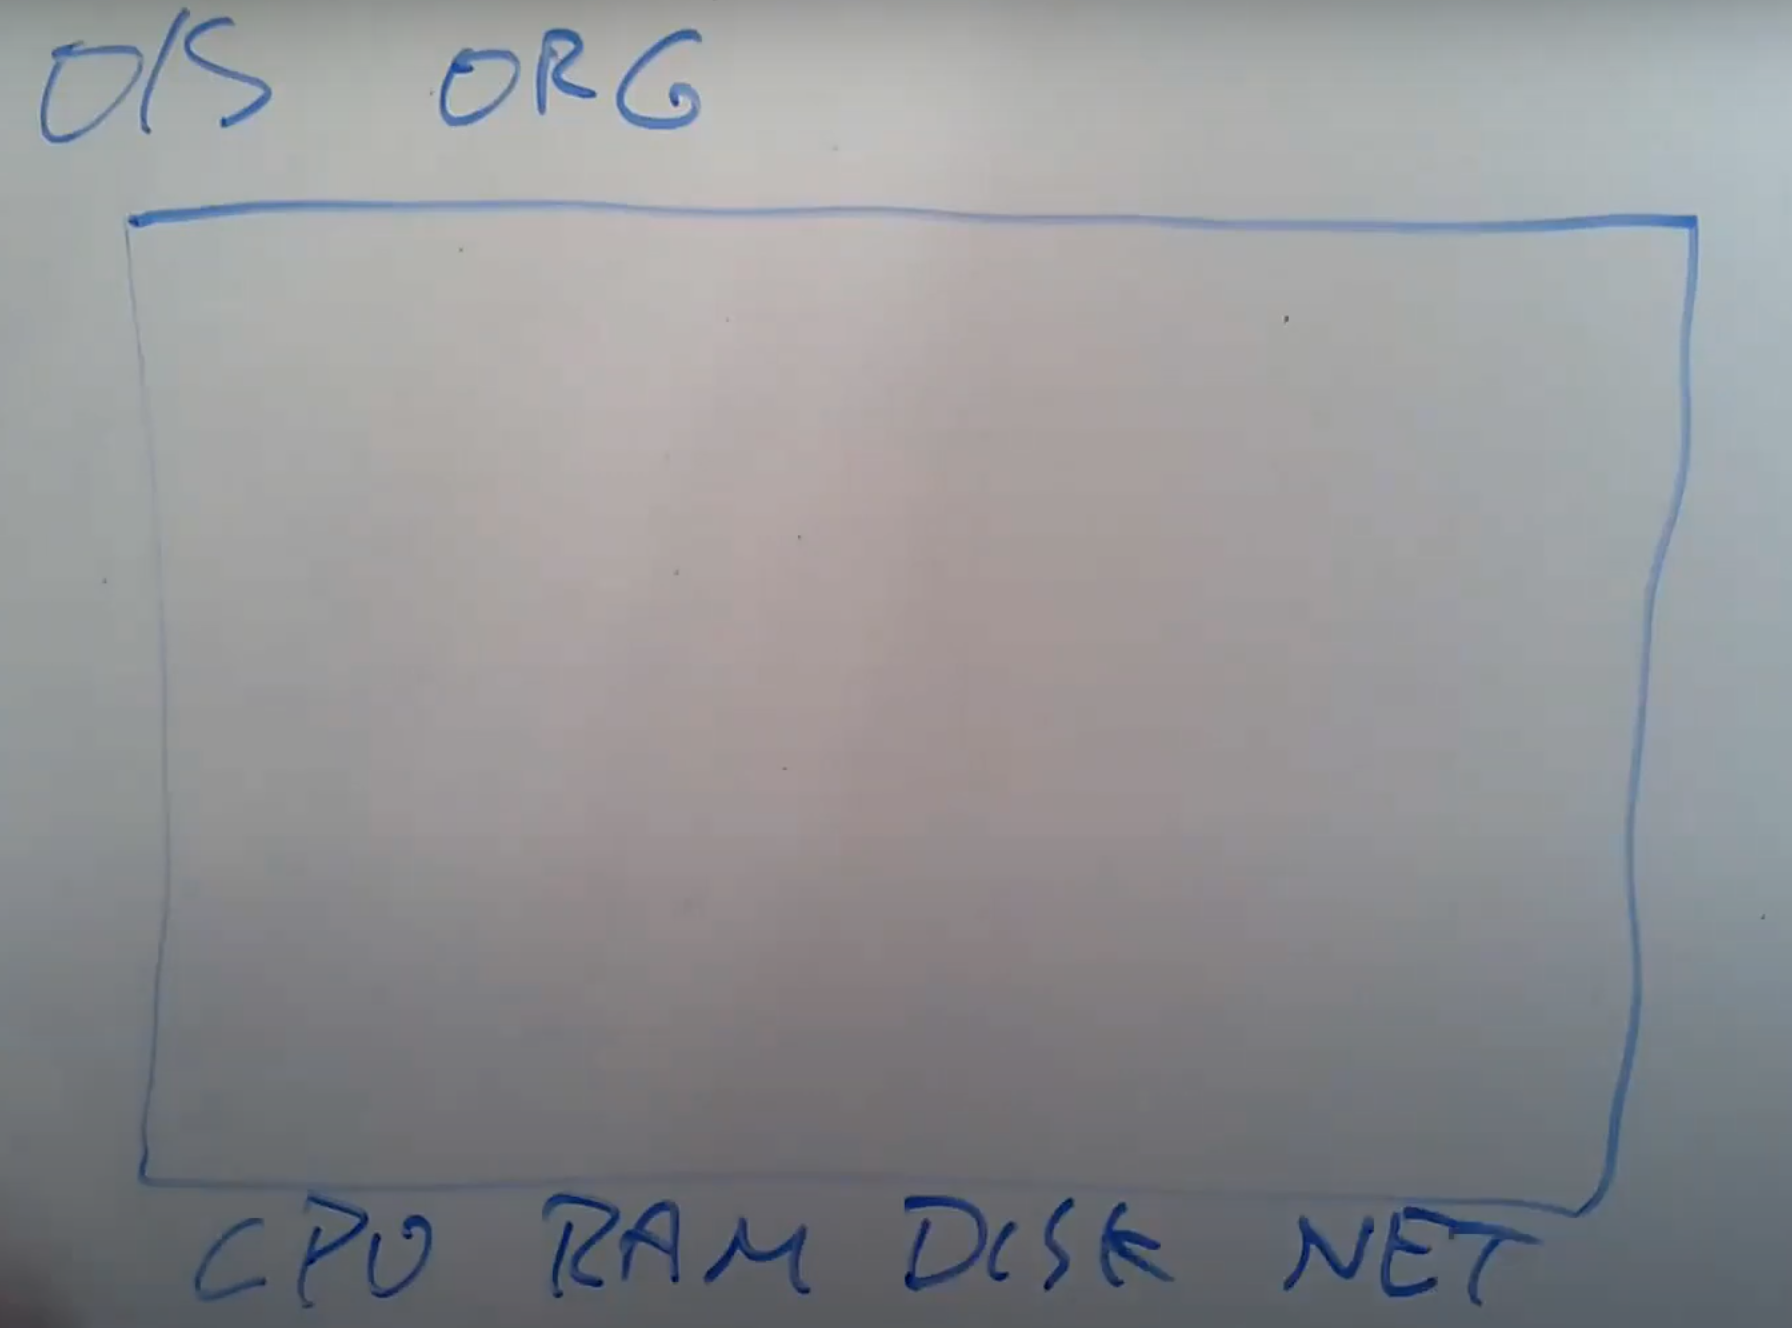 O/S ORG
CPU RAM DISK NET